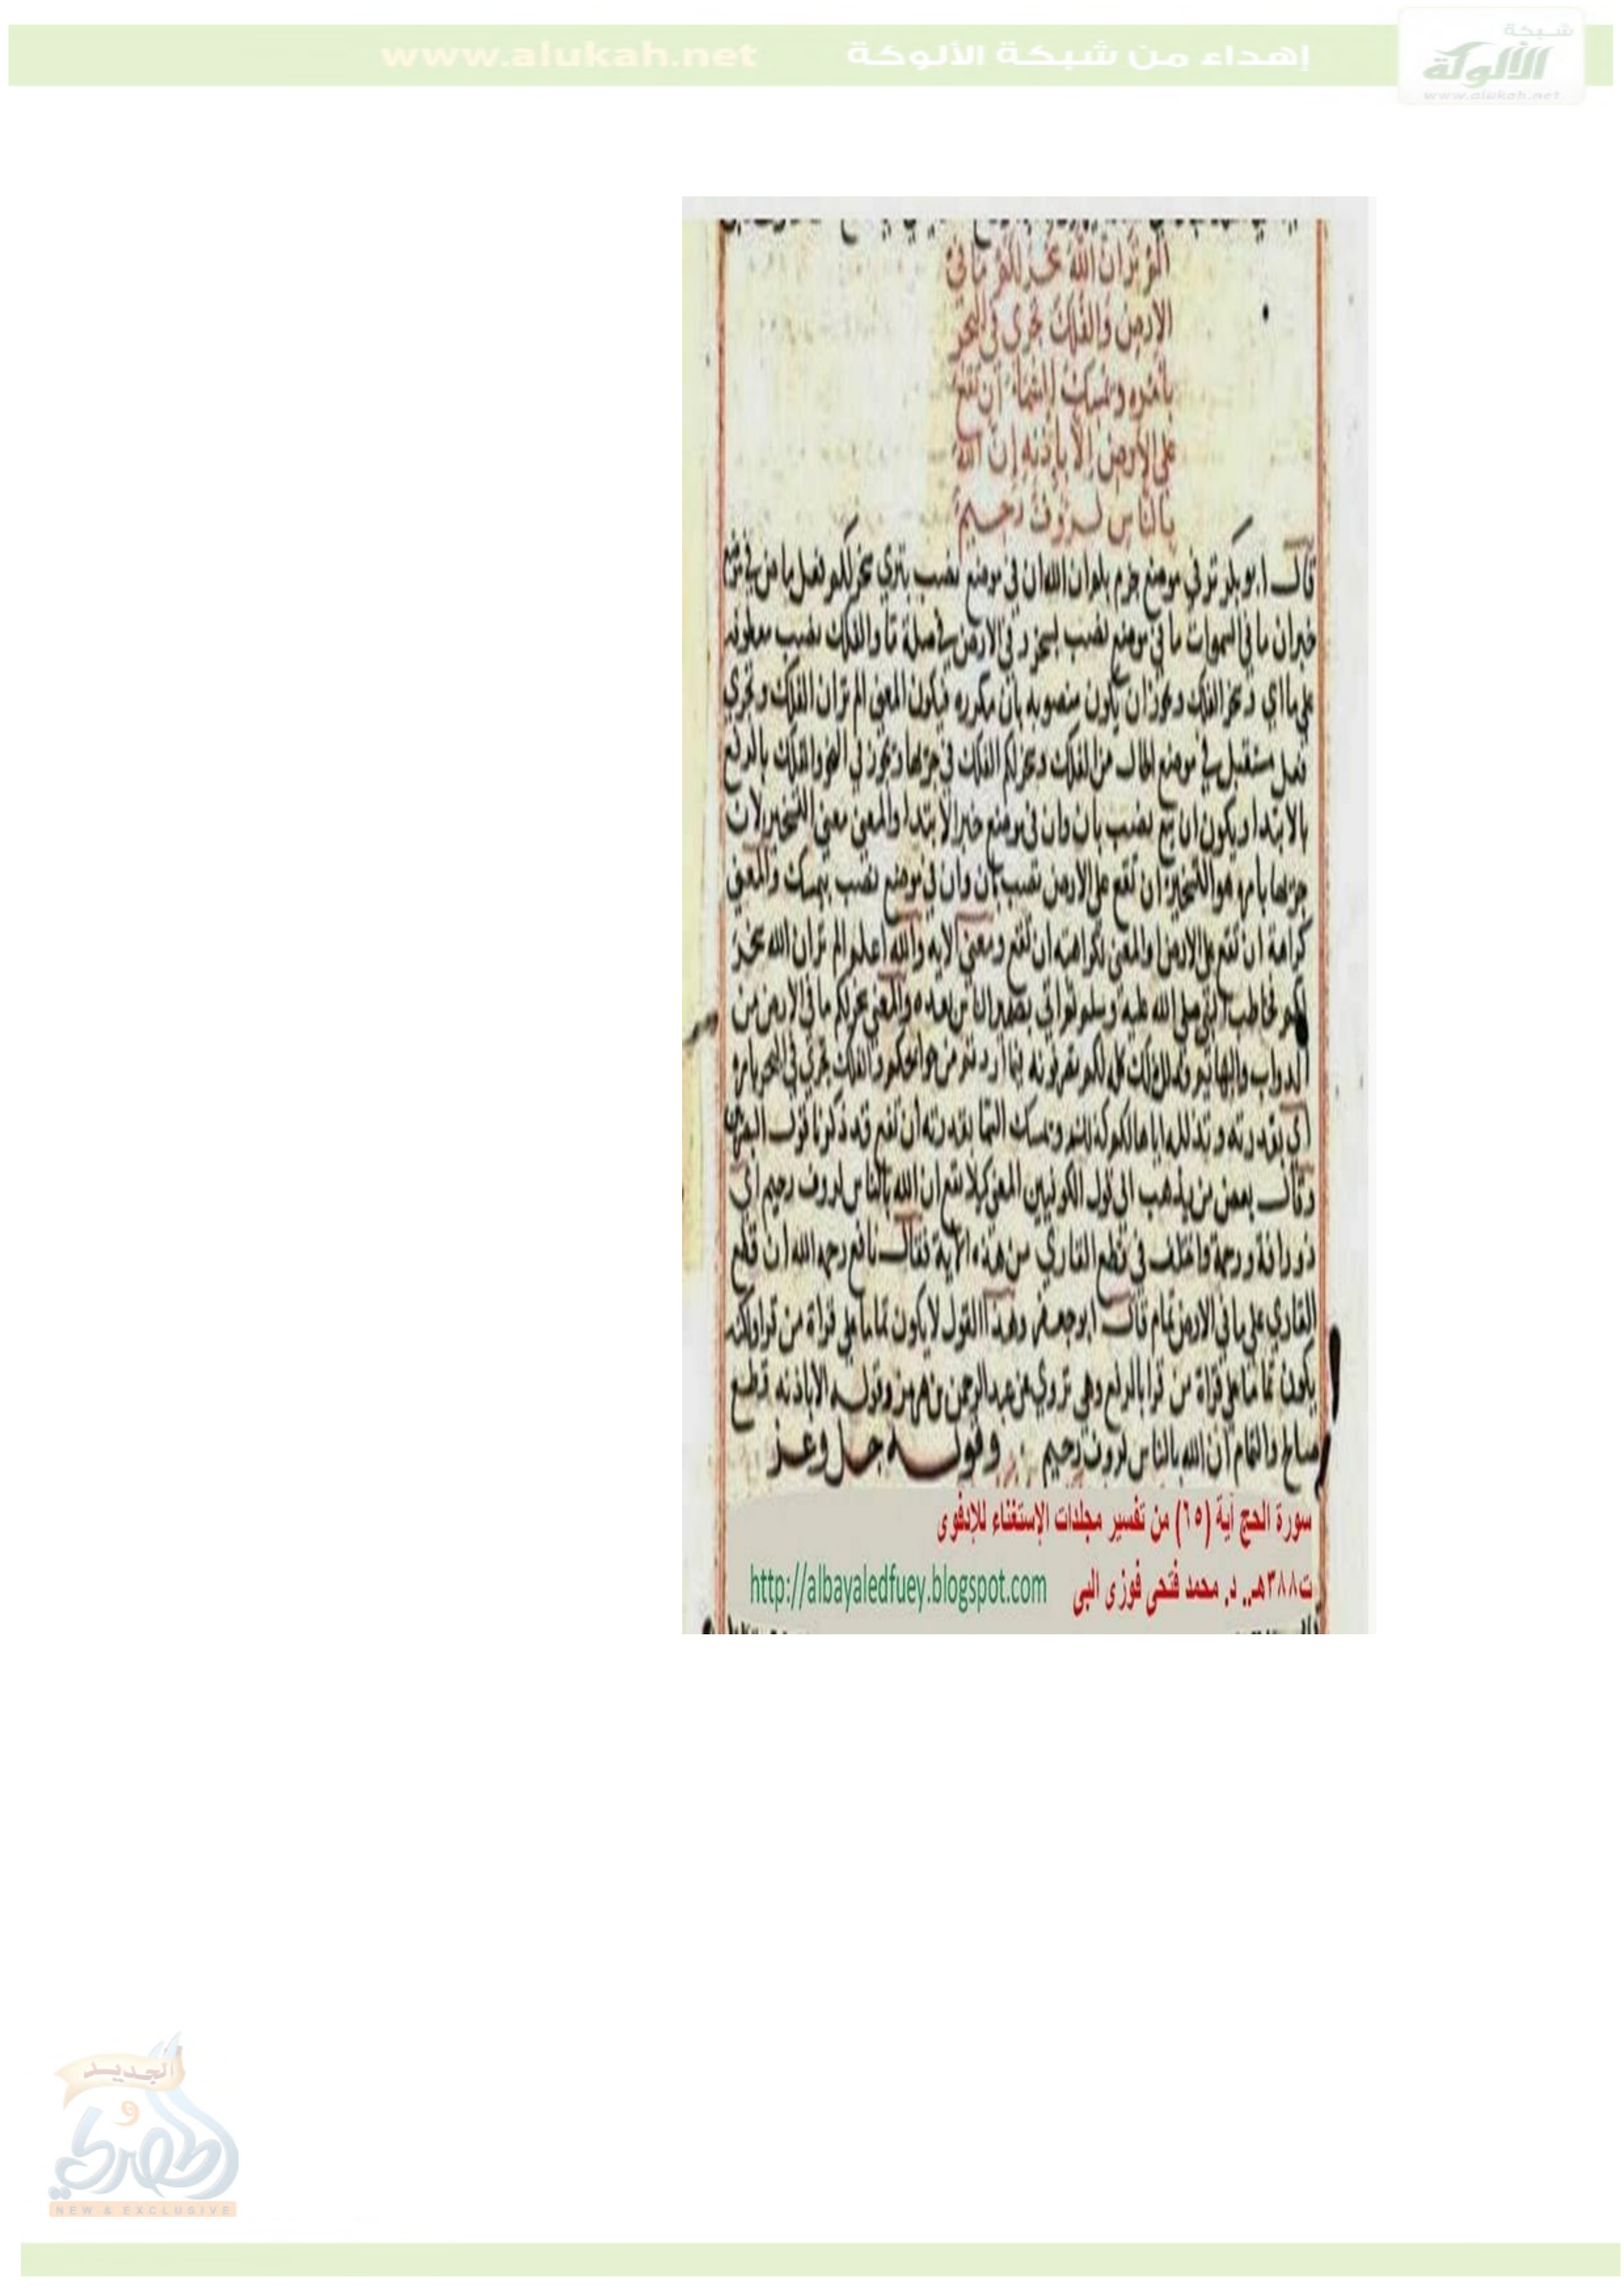 شبكة
إهداء من شبكة الألوكة www.alukah.net
الألوكة
www.alukah.net
الم تر ان الله سخر لكم ما في
الارض والفلك تجري في البحر
بامره ويمسك السماء ان تقع
على الارض الا باذنه ان الله
بالناس لروف رحيم
قال ابو بكر تر في موضع جزم بلم وان الله ان في موضع نصب بترى سخر لكم فعل ماض في موضع
خبر ان ما في السموات ما في موضع نصب بسخر و في الارض في صلة ما والفلك نصب معطوفه
على ما اي وسخر الفلك ويجوز ان يكون منصوبه بان مكرره فيكون المعنى الم تر ان الفلك وتجري
فعل مستقبل في موضع الحال من الفلك وسخر لكم الفلك في جريها ويجوز في النحو والفلك بالرفع
بالابتدا ويكون ان تقع نصب بان وان في موضع خبر الابتدا والمعنى معنى التسخير لان
جريها بامره هو التسخير ان تقع على الارض نصب بان وان في موضع نصب بيمسك والمعنى
كراهة ان تقع على الارض والمعنى لكراهيه ان تقع ومعنى الايه والله اعلم الم تر ان الله سخر
لكم فخاطب النبي صلى الله عليه وسلم والمعنى سخر لكم ما في الارض من
الدواب والبهايم فذلك كله لكم تصرفونه فيما اردتم من حوايجكم والفلك تجري في البحر بامره
اي بقدرته وتذليله اياها لكم كذلك ويمسك السما بقدرته ان تقع وقد ذكرنا قول
وقال بعض من يذهب الى قول الكوفيين المعنى كيلا تقع ان الله بالناس لروف رحيم اي
ذو رافة ورحمة واختلف في قطع القاري من هذه الآية فقال نافع رحمه الله ان قطع
القاري على ما في الارض تمام قال ابو جعفر وهذا القول لا يكون تماما على قراة من قرا ولكنه
يكون تماما على قراة من قرا بالرفع وهي تروى عن عبد الرحمن بن هرمز وقوله الا باذنه قطع
صالح والتمام ان الله بالناس لروف رحيم وقوله جل وعز
سورة الحج آية (٦٥) من تفسير مجلدات الإستغناء للإدفوى
ت٣٨٨هـ.. د. محمد فتحي فوزى البي http://albayaledfuey.blogspot.com
الجديد
و
الحصري
NEW & EXCLUSIVE